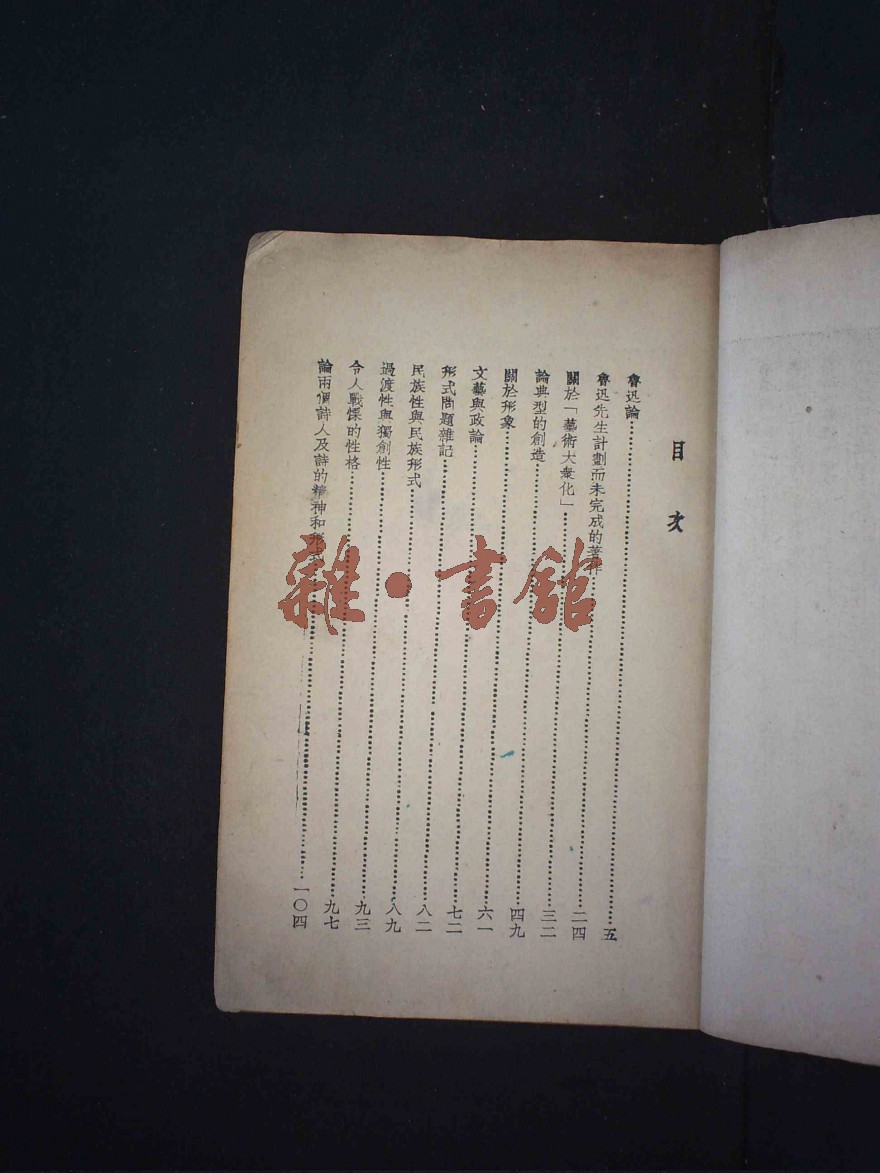 目次
魯迅論……五
魯迅先生計劃而未完成的著作……二四
關於「藝術大衆化」……三二
論典型的創造……四九
關於形象……六一
文藝與政論……七二
形式問題雜記……八二
民族性與民族形式……八九
過渡性與獨創性……九三
令人戰慄的性格……九七
論兩個詩人及詩的精神和形式……一〇四
雜·書館